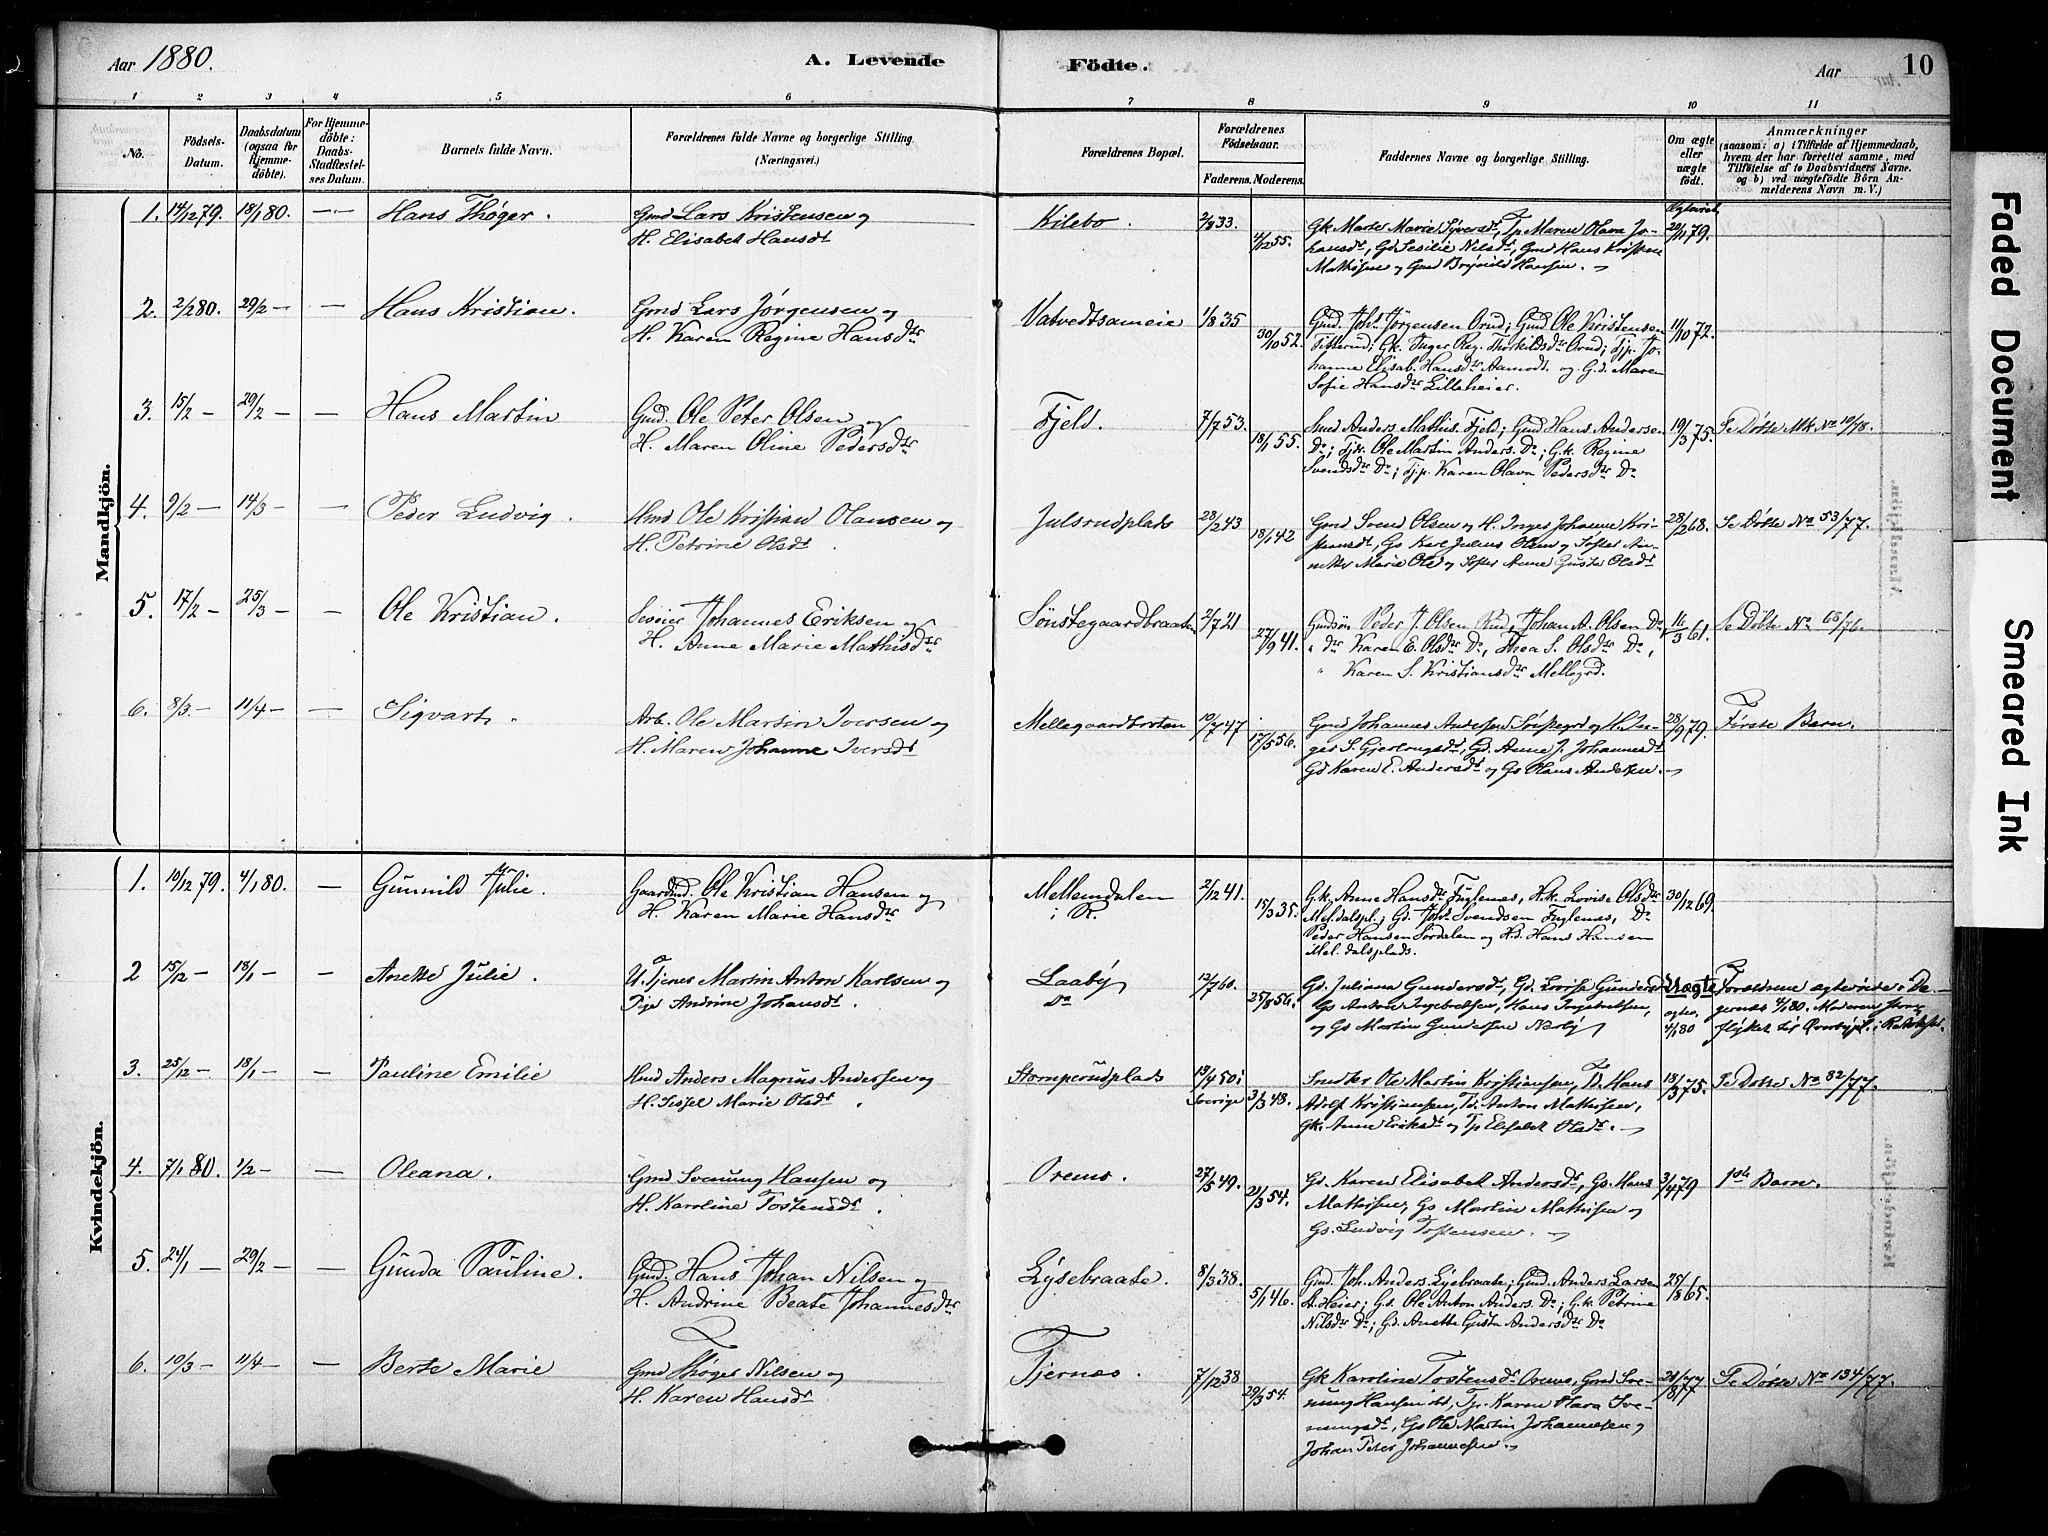 Aar 1880.
A. Levende
Födte.
Aar
10
1 2 3 4 5 6 7 8 9 10 11
No.
Födsels-
Datum.
Daabsdatum
(ogsaa for
Hjemme-
döbte).
For Hjemme-
döbte:
Daabs-
Stadfæstel-
ses Datum.
Barnets fulde Navn.
Forældrenes fulde Navne og borgerlige Stilling.
(Næringsvei.)
Forældrenes Bopæl.
Forældrenes
Födselsaar.
Faderens. Moderens.
Faddernes Navne og borgerlige Stilling.
Om ægte
eller
uægte
födt.
Anmærkninger
(saasom: a) i Tilfælde af Hjemmedaab,
hvem der har forrettet samme, med
Tilföielse af to Daabsvidners Navne.
og b) ved uægtefödte Börn An-
melderens Navn m. V.)
Mandkjön.
1. 14/12 79. 18/1 80. — Hans Thøger.
Gmd Lars Kristensen og
H. Elisabeth Hansdt
Kilebo.
2/8 33
4/12 55.
Gk Marte Marie Syversdt, Tp Maren Olava Jo-
hansdt, Gd Sesilie Nilsdt, Gmd Hans Kristian
Mathisen og Gmd Hansen.
20/11 79.
2. 2/2 80. 29/2 — — Hans Kristian.
Gmd Lars Jørgensen og
H. Karen Regine Hansdtr
Vatvedtsameie
1/8 35
30/10 52.
Gmd. Joh. Jörgensen Orud; Gmd Ole Kristensen
Titterud; Gk. Inger Reg. Thorkildsdtr Orud; Tjp. Jo-
hanne Elisab. Hansdtr Aamodt. og G.d. Maren
Sofie Hansdtr Lilleheier.
11/10 72.
3. 15/2 — 29/2 — — Hans Martin
Gmd. Ole Peter Olsen og
H. Maren Oline Pedersdtr
Fjeld.
7/7 53.
18/1 55.
Smed Anders Mathis. Fjeld; Gmd Hans Anderse
Do; Tjk. Ole Martin Anders. Do; G.k. Regine
Svendsdtr Do; Tjp. Karen Olava Pedersdtr Do
19/3 75.
Se Døbte Mk No 10/78.
4. 9/2 — 14/3 — — Peder Ludvig.
Hmd Ole Kristian Olausen og
H. Petrine Olsdt
Julsrudplads
28/2 43
18/1 42
Gmd Svend Olsen og H. Inger Johanne Kri-
stiansdt, Gs Karl Julius Olsen og Søster An-
nette Marie Olsd og Søster Anne Gusta Olsdt
28/2 68.
Se Døbte No 53/77.
5. 17/2 — 25/3 — — Ole Kristian.
Johannes Eriksen og
H. Anne Marie Mathisdtr
Sönstegaardbraaten
2/7 21
27/9 41.
Gmdsön Peder J. Olsen Rud, Johan A. Olsen Do
" dtr Karen E. Olsdtr Do, Thea S. Olsdtr Do,
" Karen S. Kristiansdtr Mellegrd.
61.
Se Döbte No 68/76.
6. 8/3 — 11/4 — — Sigvart.
Arb. Ole Martin Iversen og
H. Maren Johanne Iversdt
Mellegaardbroten
10/7 47
17/5 56.
Gmd Johannes Andersen og H. In-
ger S. Gjertrugsdt, Gd. Anne J. Johannesdt
Gd Karen E. Andersdt og Gs Hans Andersen.
28/9 79.
Første Barn.
Kvindekjön.
1. 10/12 79. 4/1 80. — Gunnild Julie.
Gaardmd. Ole Kristian Hansen og
H. Karen Marie Hansdtr
Mellemdalen
i R.
2/12 41.
15/3 35.
G.k. Anne Hansdtr Fuglenes, H.k. Lovise Olsdtr
Mel. dalspl.; Gd. Joh. Svendsen Fuglenes, Do
Peder Hansen Sördalen og H.s. Hans Hansen
Mel. dalsplads.
30/12 69.
2 15/12 — 18/1 — — Anette Julie.
U. Tjener Martin Anton Karlsen og
Pige Andrine Johansdt.
Laaby
Do
12/7 60.
25/8 56.
Gd. Juliana Gundersdt, Gd. Lovise Gundersd
Gs Anton Ingebretsen, Hans Ingebretsen,
og Gs Martin Gundersen Nærby
Uægte
4/1 80
Forældrene ægteviede i De-
gernes 4/1 80. Moderen
flyttet til i Rakkestad.
3. 25/12 — 18/1 — — Pauline Emilie
Hmd Anders Magnus Andersen og
H. Sissel Marie Olsdt.
Stomperudplads
19/4 50 i
Sverige
3/3 48.
Smed Ole Martin Kristiansen, Hans
Adolf Kristiansen, Td. Anton Mathisen,
Gk. Anne Eriksdt og Tp Elisabet Olsdt.
18/3 75.
Se Døbte No 82/77.
4. 7/1 80. 1/2 — — Oleana.
Gmd Svenung Hansen og
H. Karoline Tostensdt.
Oremo.
27/5 49.
21/3 54.
Gd. Karen Elisabet Andersdt, Gs. Hans
Mathisen, Gs Martin Mathisen og
Gs. Ludvig Tostensen.
3/4 79
1ste Barn.
5. 24/1 — 29/2 — — Gunda Pauline.
Gmd. Hans Johan Nilsen og
H. Andrine Beate Johannesdtr
Lysebraate.
8/3 38.
5/1 46.
Gmd. Joh. Anders. Lysebraate; Gmd. Anders Larsen
N. Heier; G.s. Ole Anton Anders. Do; G.k. Petrine
Nilsdtr Do; Gd. Anette Gusta Andersdtr Do
25/8 65.
6. 10/3 — 11/4 — — Berte Marie
Gmd Thøger Nilsen og
H. Karen Hansdt
Tjernæs.
7/12 38
29/3 54.
Gk Karoline Tostensdt Oremo, Gmd Sve-
nung Hansen ibd, Tp. Karen Olava Sve-
nungsdt, Gs Ole Martin Johannesen og
Johan Peter Johannesen.
Se Døbte No 134/77.
Faded Document
Smeared Ink